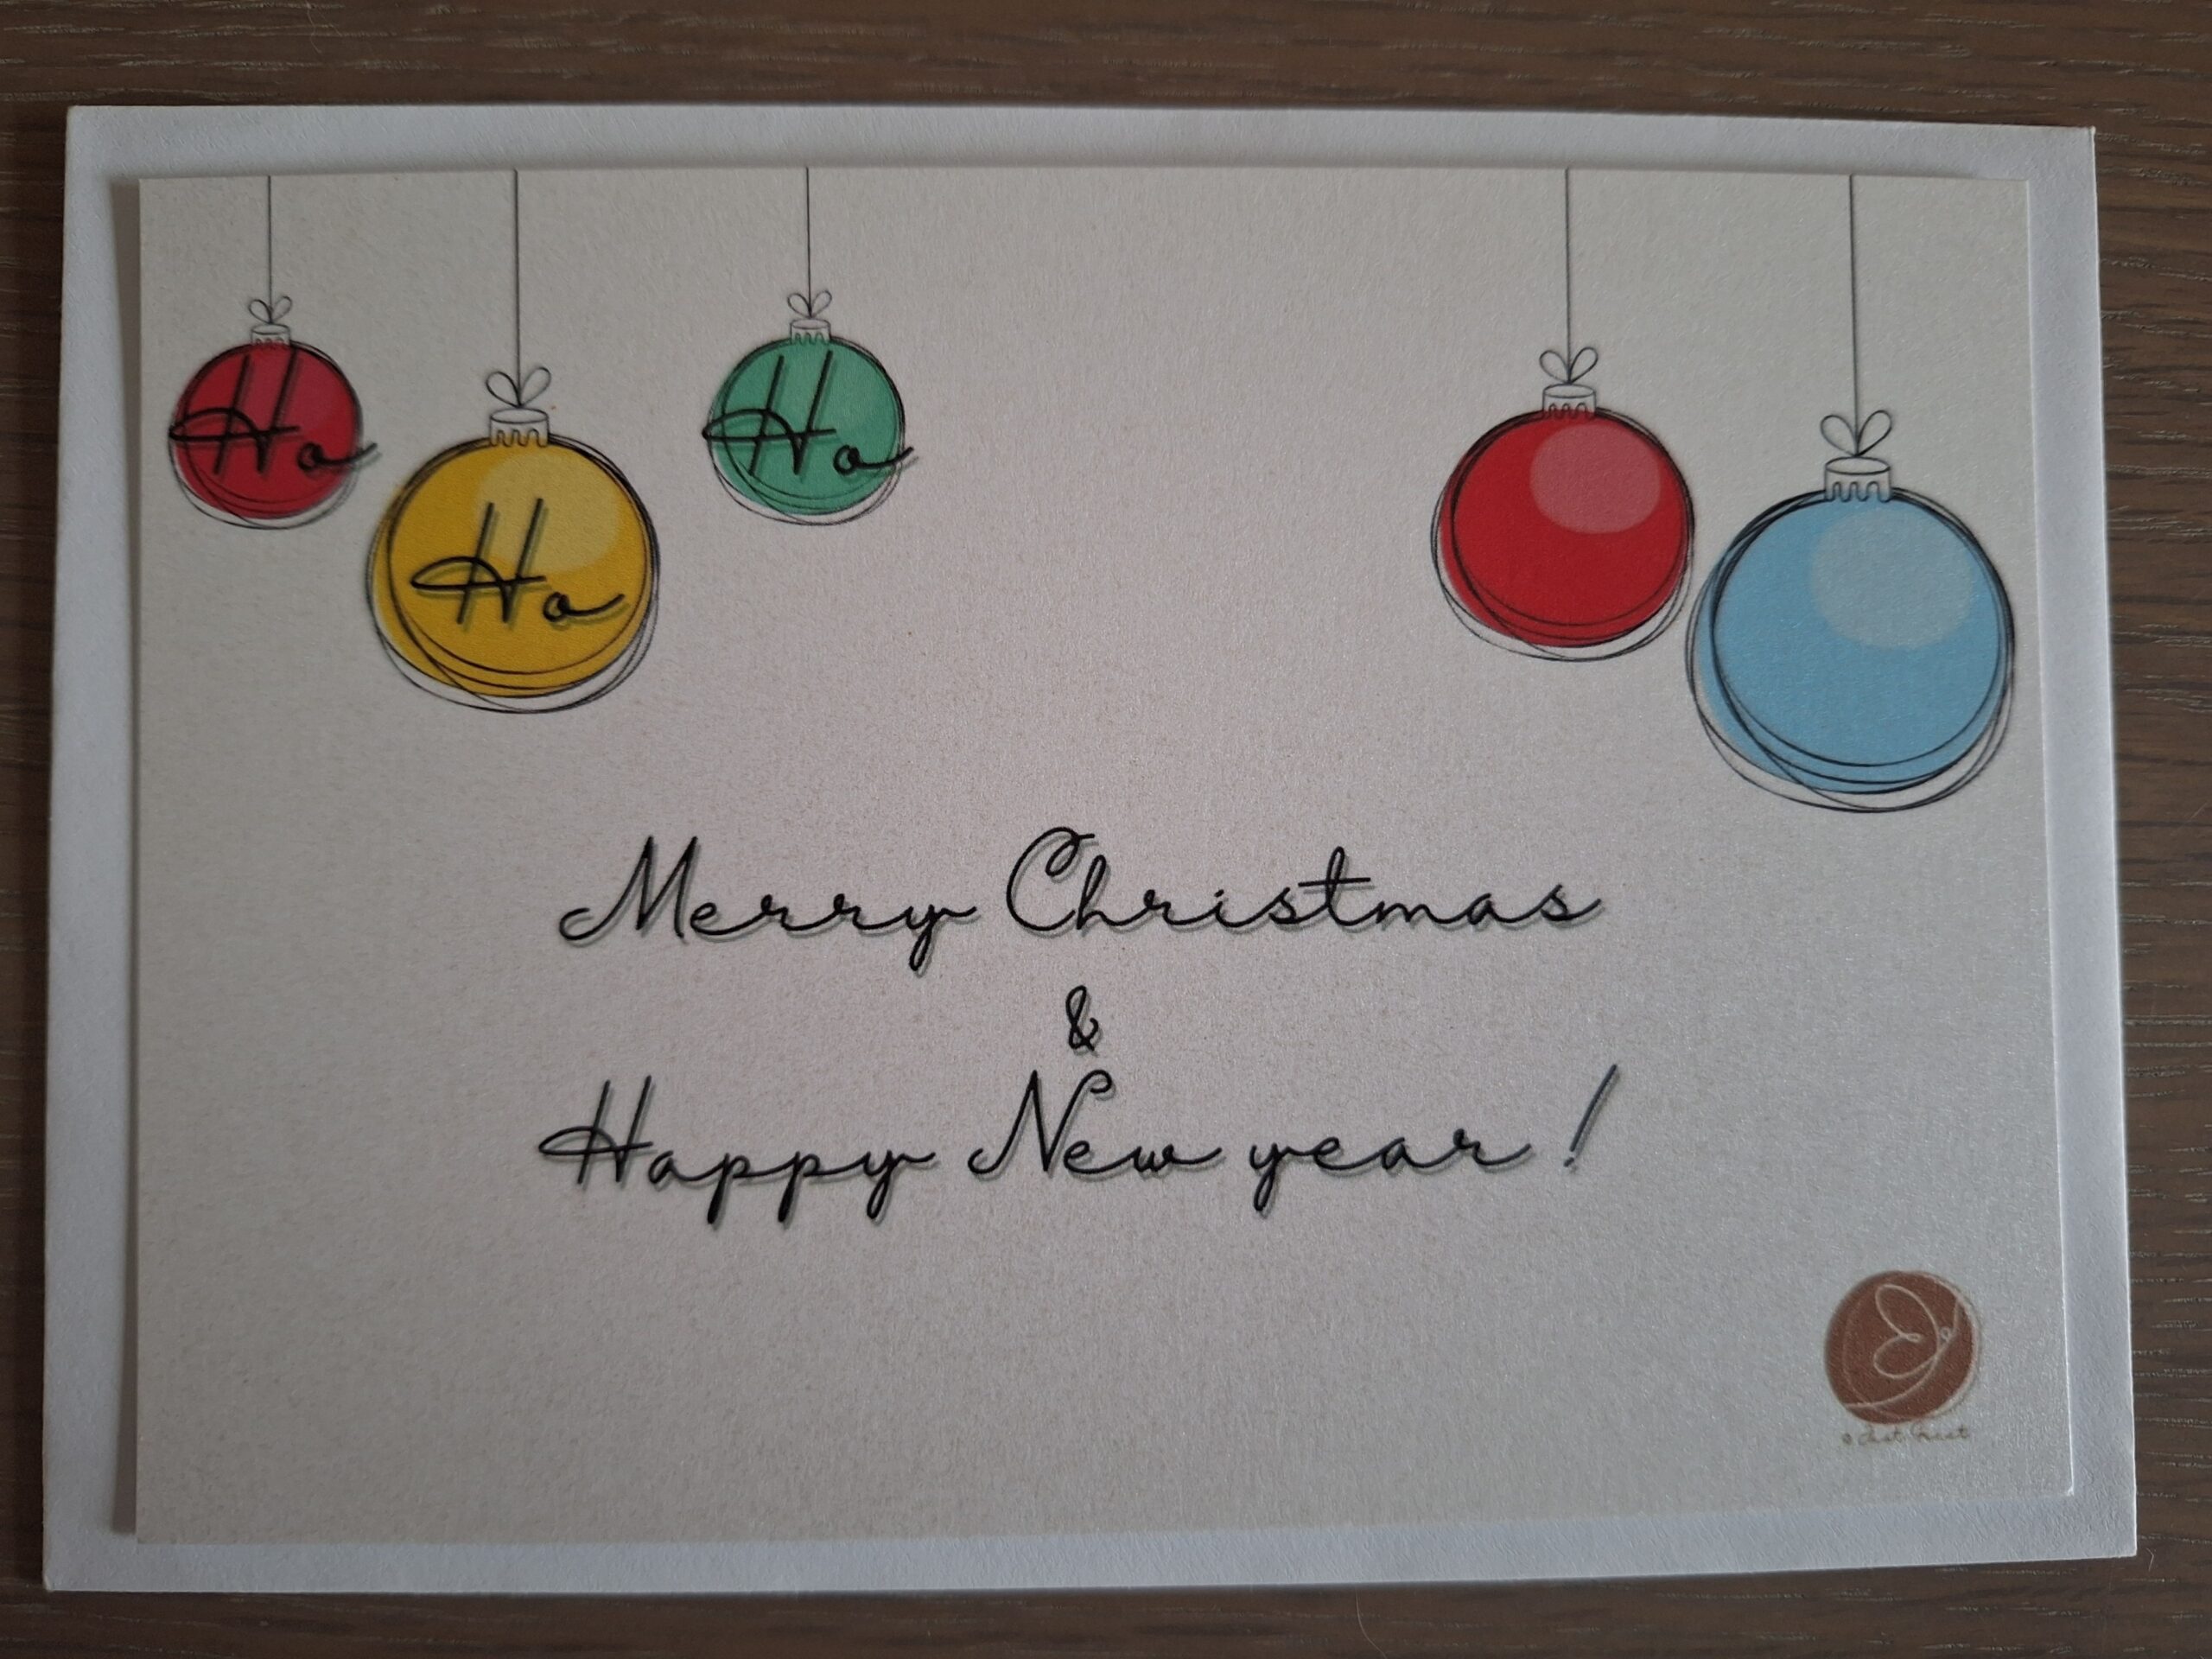 Ho
Ho
Ho
Merry Christmas
&
Happy New year !